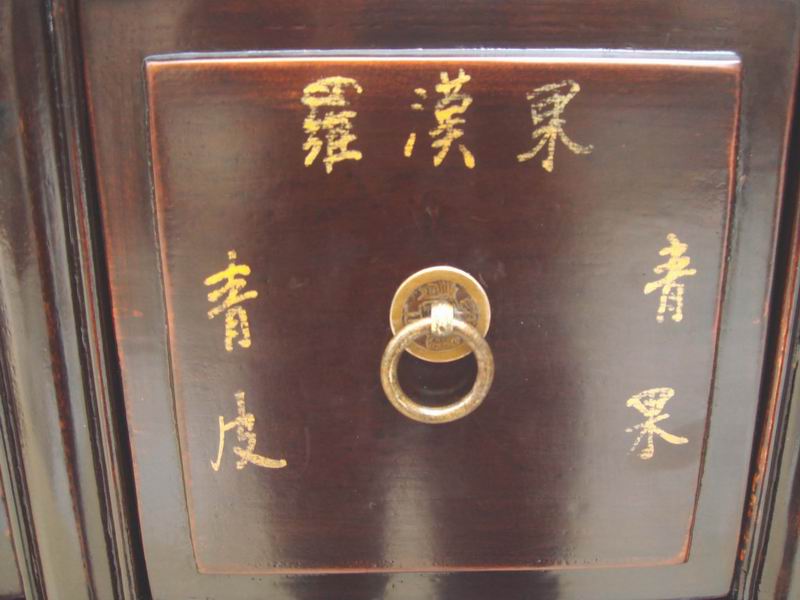 羅漢果
青果
青皮